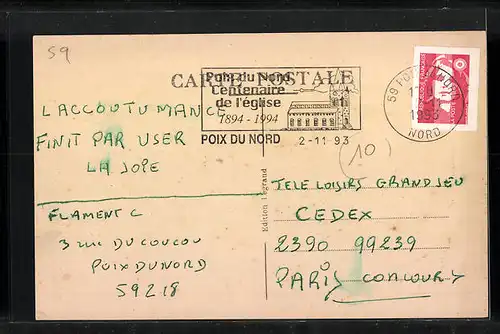 59
CARTE POSTALE
Poix du Nord
Centenaire
de l'église
1894 - 1994
POIX DU NORD
2-11 93
59 POIX DU NORD
1993
NORD
(10)
L ACCOUTUMANCE
FINIT PAR USER
LA JOIE
FLAMENT C
3 RUE DU COUCOU
POIX DU NORD
59218
Edition Legrand
TELE LOISIRS GRAND JEU
CEDEX
2390 99239
PARIS CONCOURS